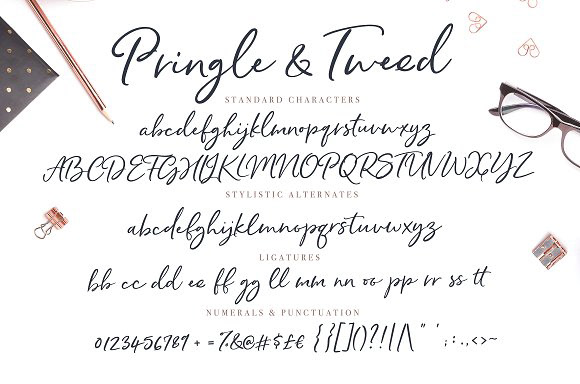 Pringle & Tweed
STANDARD CHARACTERS
abcdefghijklmnopqrstuvwxyz
ABCDEFGHIJKLMNOPQRSTUVWXYZ
STYLISTIC ALTERNATES
abcdefghijklmnopqrstuvwxyz
LIGATURES
bb cc dd ee ff gg ll mm nn oo pp rr ss tt
NUMERALS & PUNCTUATION
0123456789 + = %&@#$£€ {}[]()?!|/\ " ' ; : . , < > ~